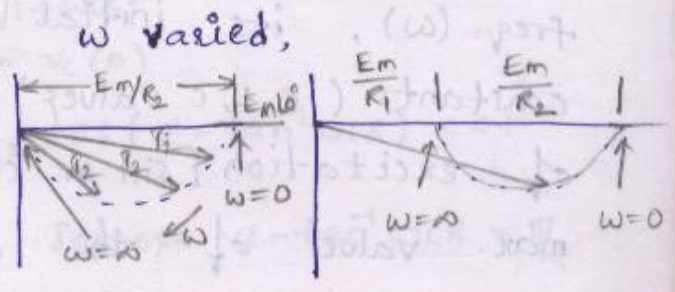 ω varied,
Em/R2
Em∠0°
I1
I2
I2
ω=0
ω=∞
ω
Em/R1
Em/R2
ω=∞
ω=0